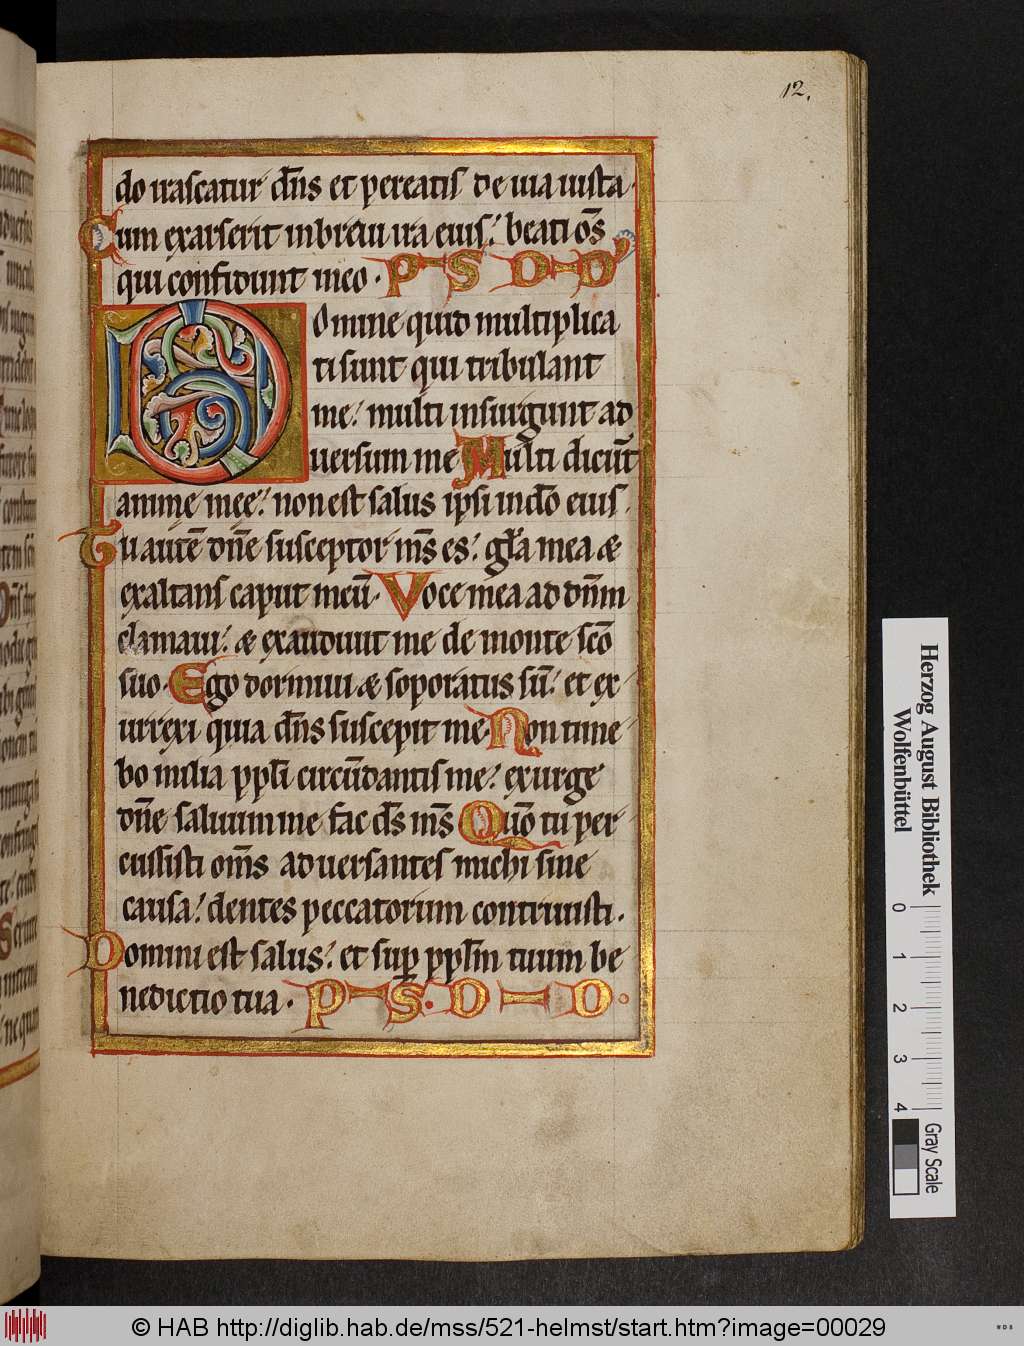 12.
do irascatur dn̄s et pereatis de uia iusta.
Cum exarserit inbreui ira eius: beati om̄s
qui confidunt ineo. PS DD
Domine quid multiplica
ti sunt qui tribulant
me: multi insurgunt ad
uersum me Multi dicūt
anime meę: non est salus ipsi indō eius.
Tu autē dn̄e susceptor m̄s es: gl̄a mea &
exaltans caput meū. Voce mea ad dn̄m
clamaui: & exaudiuit me de monte scō
suo. Ego dormiui & soporatus sū: et ex
urrexi quia dn̄s suscepit me. Non time
bo milia ppl̄i circūdantis me: exurge
dn̄e saluum me fac ds̄ m̄s Quō tu per
cussisti om̄s aduersantes michi sine
causa: dentes peccatorum contriuisti.
Domini est salus: et sup̄ ppl̄m tuum be
nedictio tua. PS. DD.
Herzog August Bibliothek
Wolfenbüttel
0 1 2 3 4
Gray Scale
© HAB http://diglib.hab.de/mss/521-helmst/start.htm?image=00029